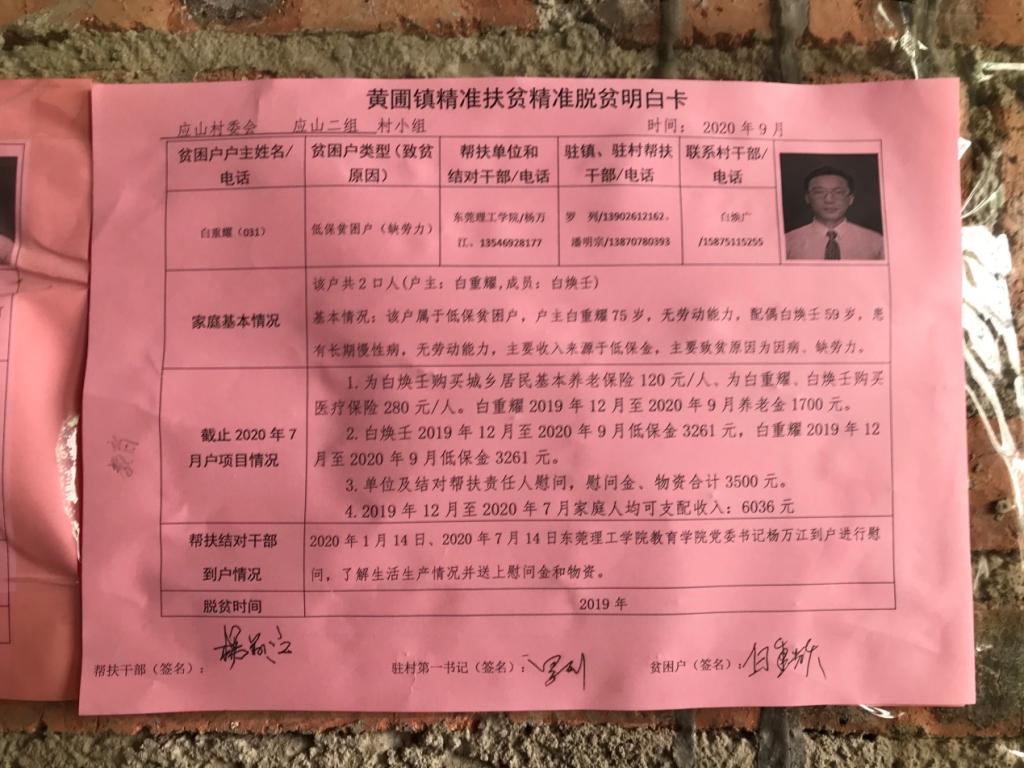 黄圃镇精准扶贫精准脱贫明白卡
应山村委会 应山二组 村小组 时间： 2020 年 9 月
贫困户户主姓名/
电话
贫困户类型（致贫
原因）
帮扶单位和
结对干部/电话
驻镇、驻村帮扶
干部/电话
联系村干部/
电话
白重耀（031）
低保贫困户（缺劳力）
东莞理工学院/杨万
江。13546928177
罗 列/13902612162。
潘明宗/13870780393
白焕广
/15875115255
家庭基本情况
该户共 2 口人(户主：白重耀,成员：白焕壬)
基本情况：该户属于低保贫困户，户主白重耀 75 岁，无劳动能力，配偶白焕壬 59 岁，患
有长期慢性病，无劳动能力，主要收入来源于低保金，主要致贫原因为因病、缺劳力。
截止 2020 年 7
月户项目情况
1. 为白焕壬购买城乡居民基本养老保险 120 元/人、为白重耀、白焕壬购买
医疗保险 280 元/人。白重耀 2019 年 12 月至 2020 年 9 月养老金 1700 元。
2. 白焕壬 2019 年 12 月至 2020 年 9 月低保金 3261 元，白重耀 2019 年 12
月至 2020 年 9 月低保金 3261 元。
3. 单位及结对帮扶责任人慰问，慰问金、物资合计 3500 元。
4. 2019 年 12 月至 2020 年 7 月家庭人均可支配收入：6036 元
帮扶结对干部
到户情况
2020 年 1 月 14 日、2020 年 7 月 14 日东莞理工学院教育学院党委书记杨万江到户进行慰
问，了解生活生产情况并送上慰问金和物资。
脱贫时间
2019 年
帮扶干部（签名）： 杨万江
驻村第一书记（签名）： 罗列
贫困户（签名）： 白重耀